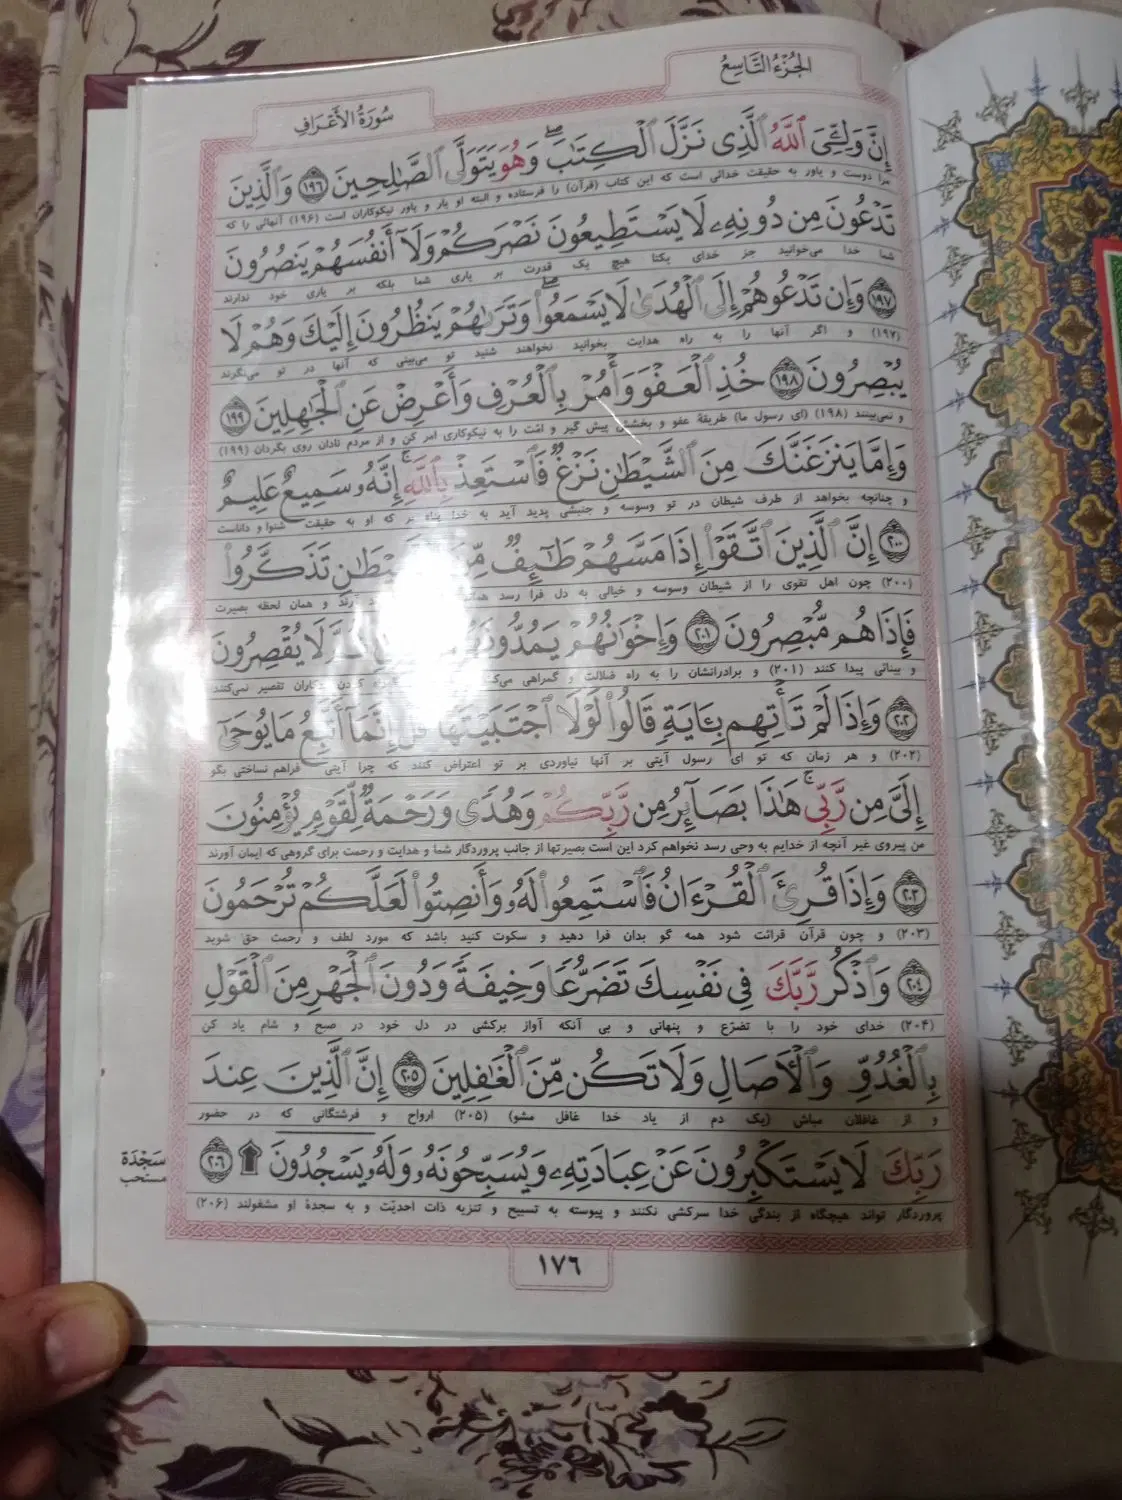 الجُزْءُ التَّاسِعُ
سُورَةُ الأَعْرَافِ
إِنَّ وَلِـِّۧىَ ٱللَّهُ ٱلَّذِى نَزَّلَ ٱلْكِتَٰبَ ۖ وَهُوَ يَتَوَلَّى ٱلصَّٰلِحِينَ ١٩٦ وَٱلَّذِينَ
مرا دوست و یاور به حقیقت خدائی است که این کتاب (قرآن) را فرستاده و البته او یار و یاور نیکوکاران است (۱۹۶) آنهائی را که
تَدْعُونَ مِن دُونِهِۦ لَا يَسْتَطِيعُونَ نَصْرَكُمْ وَلَآ أَنفُسَهُمْ يَنصُرُونَ
شما خدا می‌خوانید جز خدای یکتا هیچ یک قدرت بر یاری شما بلکه بر یاری خود ندارند
١٩٧ وَإِن تَدْعُوهُمْ إِلَى ٱلْهُدَىٰ لَا يَسْمَعُوا۟ ۖ وَتَرَىٰهُمْ يَنظُرُونَ إِلَيْكَ وَهُمْ لَا
(۱۹۷) و اگر آنها را به راه هدایت بخوانید نخواهند شنید تو می‌بینی که آنها در تو می‌نگرند
يُبْصِرُونَ ١٩٨ خُذِ ٱلْعَفْوَ وَأْمُرْ بِٱلْعُرْفِ وَأَعْرِضْ عَنِ ٱلْجَٰهِلِينَ ١٩٩
و نمی‌بینند (۱۹۸) (ای رسول ما) طریقهٔ عفو و بخشش پیش گیر و امّت را به نیکوکاری امر کن و از مردم نادان روی بگردان (۱۹۹)
وَإِمَّا يَنزَغَنَّكَ مِنَ ٱلشَّيْطَٰنِ نَزْغٌ فَٱسْتَعِذْ بِٱللَّهِ ۚ إِنَّهُۥ سَمِيعٌ عَلِيمٌ
و چنانچه بخواهد از طرف شیطان در تو وسوسه و جنبشی پدید آید به خدا پناه بر که او به حقیقت شنوا و داناست
٢٠٠ إِنَّ ٱلَّذِينَ ٱتَّقَوْا۟ إِذَا مَسَّهُمْ طَٰٓئِفٌ مِّنَ ٱلشَّيْطَٰنِ تَذَكَّرُوا۟
(۲۰۰) چون اهل تقوی را از شیطان وسوسه و خیالی به دل فرا رسد و همان لحظه بصیرت
فَإِذَا هُم مُّبْصِرُونَ ٢٠١ وَإِخْوَٰنُهُمْ يَمُدُّونَهُمْ لَا يُقْصِرُونَ
و بینائی پیدا کنند (۲۰۱) و برادرانشان را به راه ضلالت و گمراهی تقصیر نمی‌کنند
٢٠٢ وَإِذَا لَمْ تَأْتِهِم بِـَٔايَةٍ قَالُوا۟ لَوْلَا ٱجْتَبَيْتَهَا ۚ قُلْ إِنَّمَآ أَتَّبِعُ مَا يُوحَىٰٓ
(۲۰۲) و هر زمان که تو ای رسول آیتی بر آنها نیاوردی بر تو اعتراض کنند که چرا آیتی فراهم نساختی بگو
إِلَىَّ مِن رَّبِّى ۚ هَٰذَا بَصَآئِرُ مِن رَّبِّكُمْ وَهُدًى وَرَحْمَةٌ لِّقَوْمٍ يُؤْمِنُونَ
من پیروی غیر آنچه از خدایم به وحی رسد نخواهم کرد این است بصیرتها از جانب پروردگار شما و هدایت و رحمت برای گروهی که ایمان آورند
٢٠٣ وَإِذَا قُرِئَ ٱلْقُرْءَانُ فَٱسْتَمِعُوا۟ لَهُۥ وَأَنصِتُوا۟ لَعَلَّكُمْ تُرْحَمُونَ
(۲۰۳) و چون قرآن قرائت شود همه گو بدان فرا دهید و سکوت کنید باشد که مورد لطف و رحمت حق شوید
٢٠٤ وَٱذْكُر رَّبَّكَ فِى نَفْسِكَ تَضَرُّعًا وَخِيفَةً وَدُونَ ٱلْجَهْرِ مِنَ ٱلْقَوْلِ
(۲۰۴) خدای خود را با تضرّع و پنهانی و بی آنکه آواز برکشی در دل خود در صبح و شام یاد کن
بِٱلْغُدُوِّ وَٱلْأَصَالِ وَلَا تَكُن مِّنَ ٱلْغَٰفِلِينَ ٢٠٥ إِنَّ ٱلَّذِينَ عِندَ
و از غافلان مباش (یک دم از یاد خدا غافل مشو) (۲۰۵) ارواح و فرشتگانی که در حضور
رَبِّكَ لَا يَسْتَكْبِرُونَ عَنْ عِبَادَتِهِۦ وَيُسَبِّحُونَهُۥ وَلَهُۥ يَسْجُدُونَ ۩ ٢٠٦
سَجْدَة
مستحب
پروردگار تواند هیچگاه از بندگی خدا سرکشی نکنند و پیوسته به تسبیح و تنزیه ذات احدیّت و به سجدهٔ او مشغولند (۲۰۶)
١٧٦